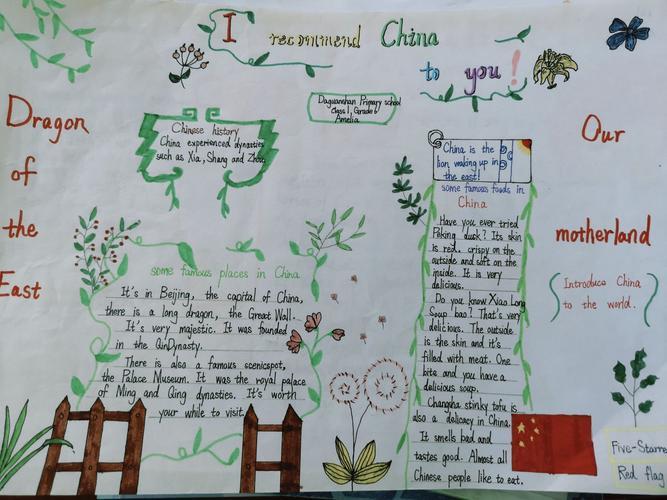 I recommend China
to you!
Dragon
of
the
East
Daguanshan Primary school
Class 1, Grade 6
Amelia
Chinese history
China experienced dynasties
such as Xia, Shang and Zhou
China is the
lion waking up in
the east!
Our
motherland
Introduce China
to the world.
some famous places in China
It's in Beijing, the capital of China,
there is a long dragon, the Great Wall.
It's very majestic. It was founded
in the QinDynasty.
There is also a famous scenicspot,
the Palace Museum. It was the royal palace
of Ming and Qing dynasties. It's worth
your while to visit.
some famous foods in
China
Have you ever tried
Peking duck? Its skin
is red. crispy on the
outside and soft on the
inside. It is very
delicious.
Do you know Xiao Long
Soup bao? That's very
delicious. The outside
is the skin and it's
filled with meat. One
bite and you have a
delicious soup.
Changsha stinky tofu is
also a delicacy in China.
It smells bad and
tastes good. Almost all
Chinese people like to eat.
Five-Starre
Red flag